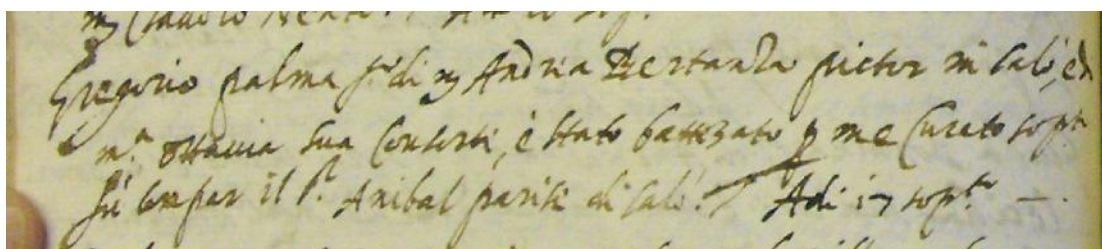 Gregorio palma f. di m Andria Bertanza pictor in Salò, et
m.ª Ottavia sua consorte, è stato battezzato p me Curato sop.to
fù compar il S.r Anibal parisi di Salò. Adi 17 sop.to